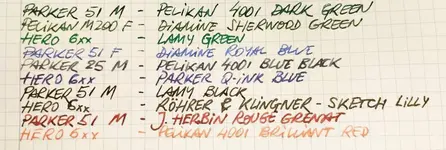 PARKER 51 M - PELIKAN 4001 DARK GREEN
PELIKAN M200 F - DIAMINE SHERWOOD GREEN
HERO 6xx - LAMY GREEN
PARKER 51 F - DIAMINE ROYAL BLUE
PARKER 25 M - PELIKAN 4001 BLUE BLACK
HERO 6xx - PARKER Q-INK BLUE
PARKER 51 M - LAMY BLACK
HERO 6xx - RÖHRER & KLINGNER - SKETCH LILLY
PARKER 51 M - J. HERBIN ROUGE GRENAT
HERO 6xx - PELIKAN 4001 BRILLIANT RED